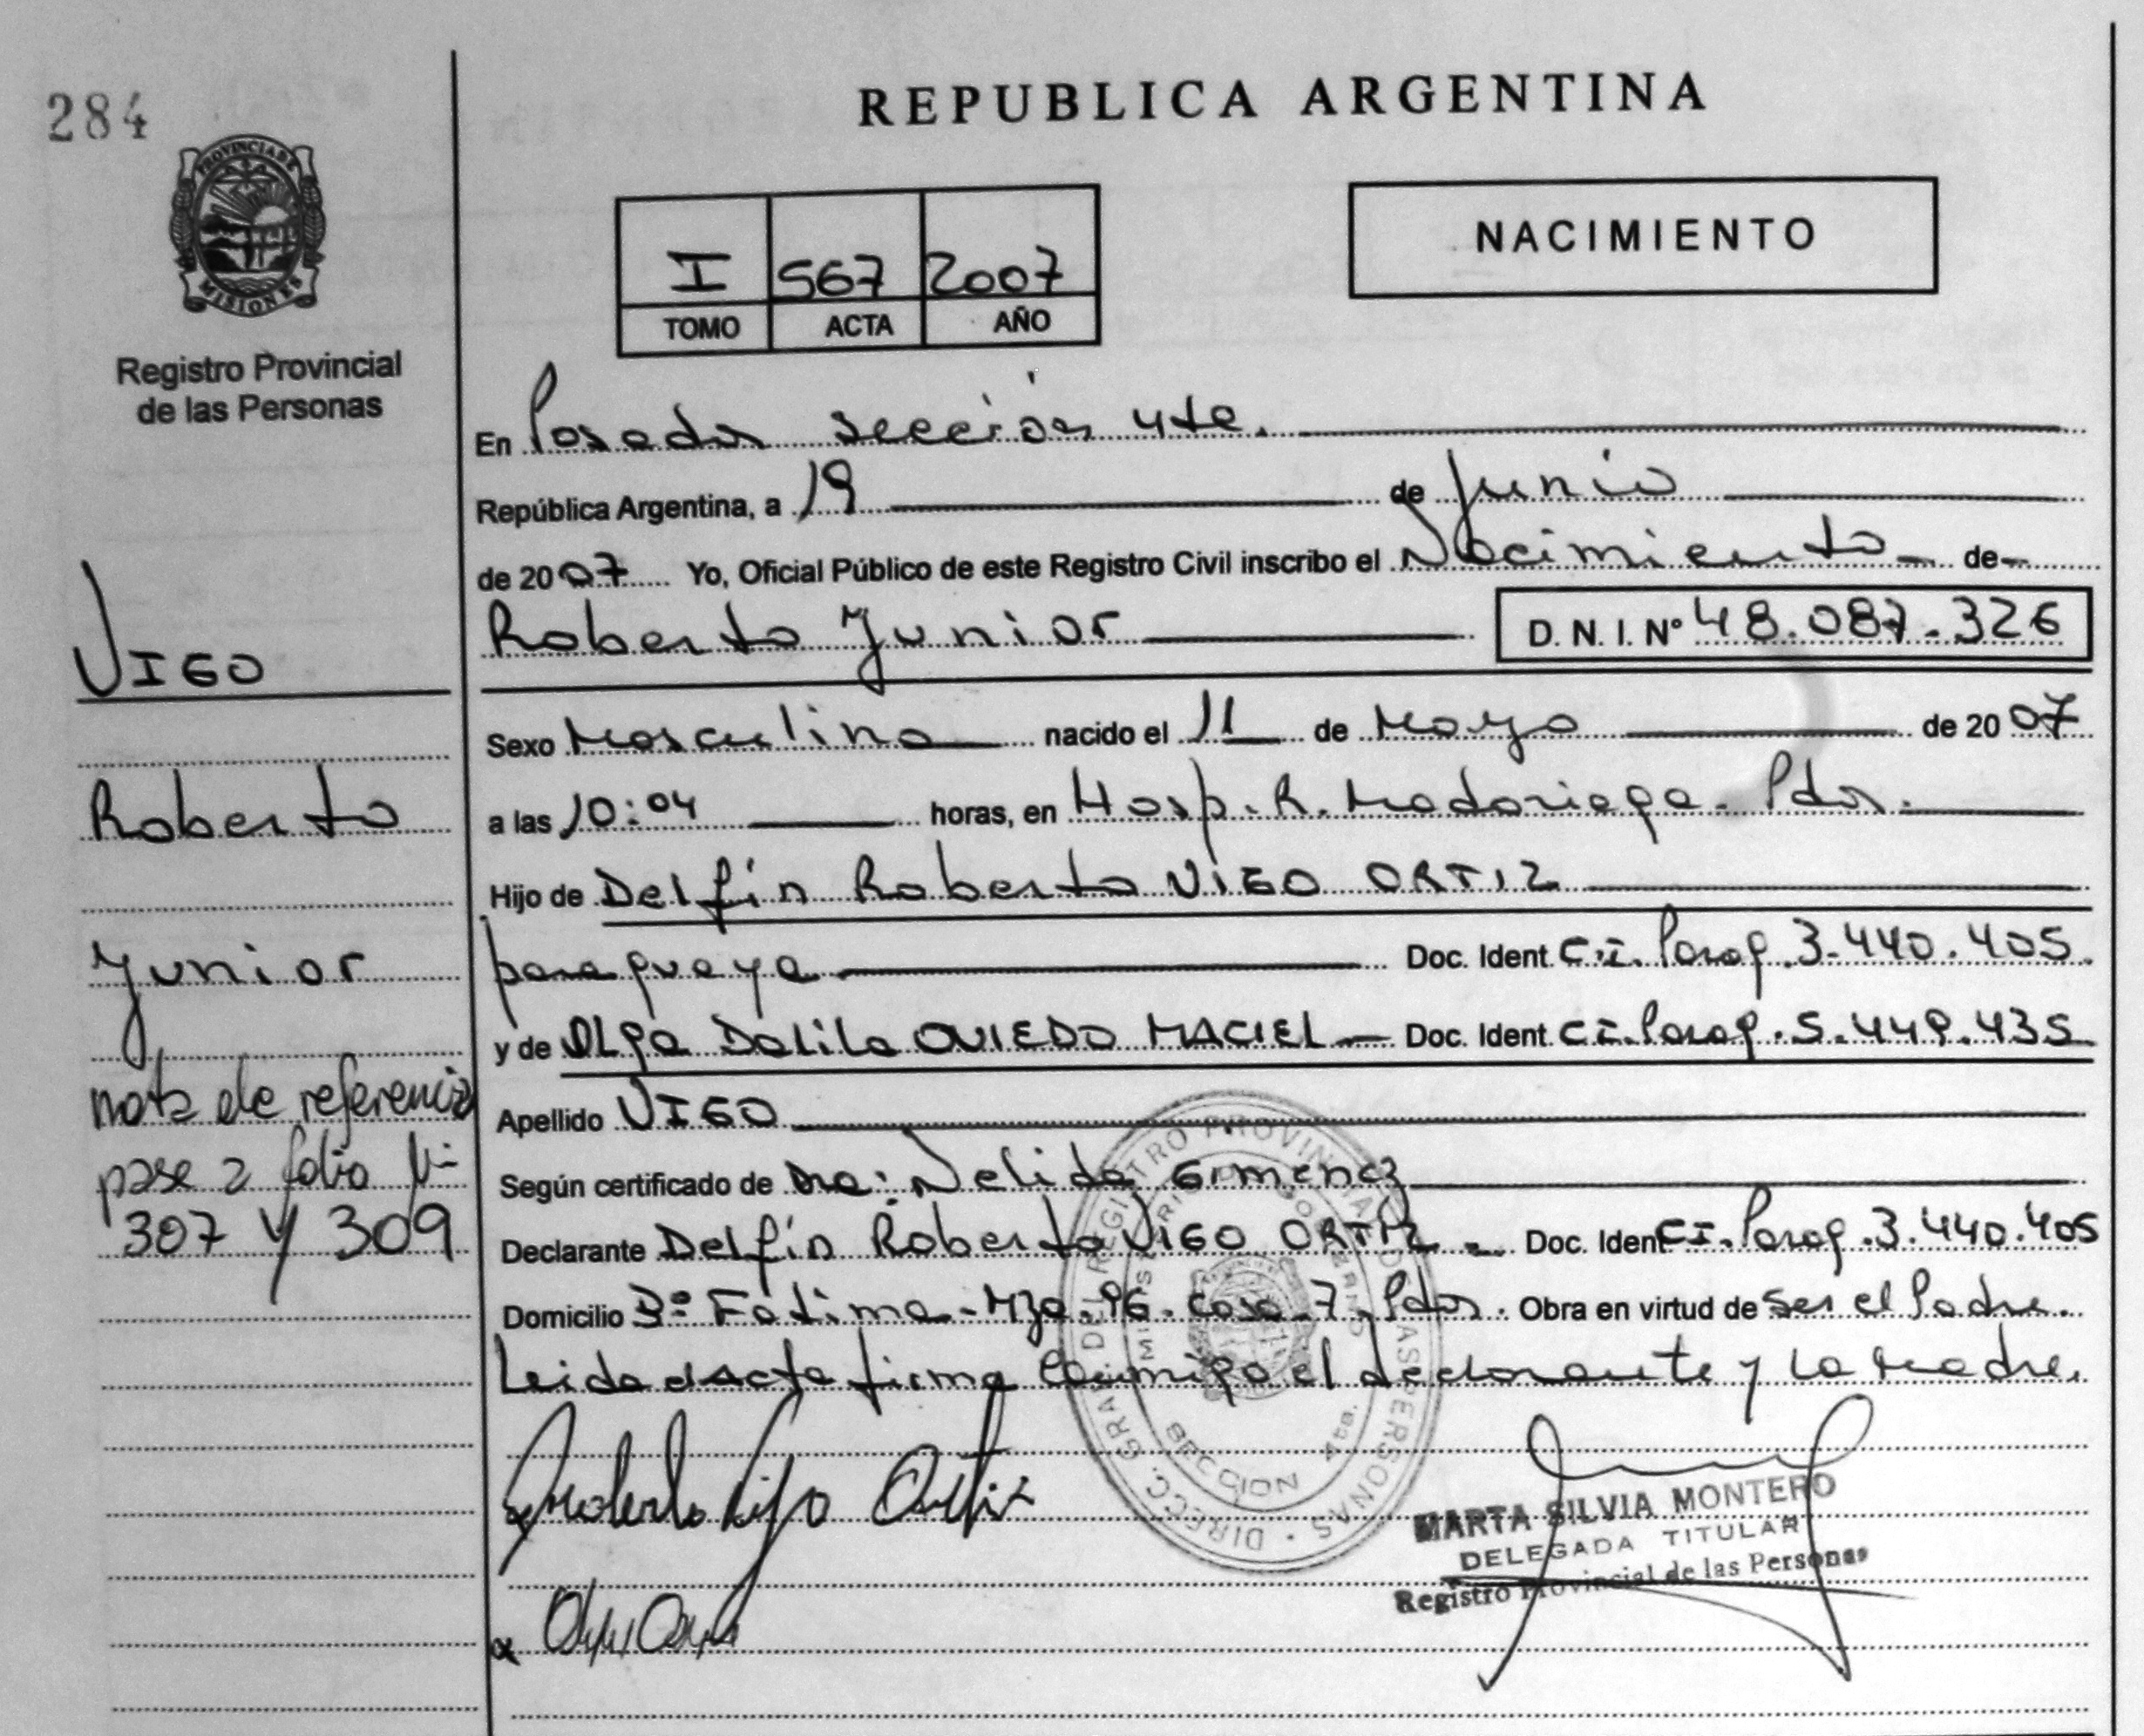 284
REPUBLICA ARGENTINA
PROVINCIA DE
MISIONES
Registro Provincial
de las Personas
I 567 2007
TOMO ACTA AÑO
NACIMIENTO
En Posadas sección 4ta.
República Argentina, a 19 de Junio
de 2007 Yo, Oficial Público de este Registro Civil inscribo el Nacimiento de
Roberto Junior D. N. I. Nº 48.087.326
Sexo Masculino nacido el 11 de Mayo de 2007
a las 10:04 horas, en Hosp. R. Madariaga - Pdas.
Hijo de Delfín Roberto VIGO ORTIZ
paraguaya Doc. Ident. C.I. Parag. 3.440.405.
y de Olga Dalila OVIEDO MACIEL Doc. Ident. C.I. Parag. 5.449.435
Apellido VIGO
Según certificado de Dra: Nelida Gimenez
Declarante Delfín Roberto VIGO ORTIZ - Doc. Ident. C.I. Parag. 3.440.405
Domicilio Bº Fátima - Mza. 96. casa 7. Pdas. Obra en virtud de ser el Padre.
Leida el acta firma conmigo el declarante y la Madre.
VIGO
Roberto
Junior
nota de referencia
pase a folio Nº
307 y 309
DIRECC. GRAL. DEL REGISTRO PROVINCIAL DE LAS PERSONAS
MINISTERIO DE GOBIERNO
SECCION 4ta.
Roberto Vigo Ortiz
MARTA SILVIA MONTERO
DELEGADA TITULAR
Registro Provincial de las Personas